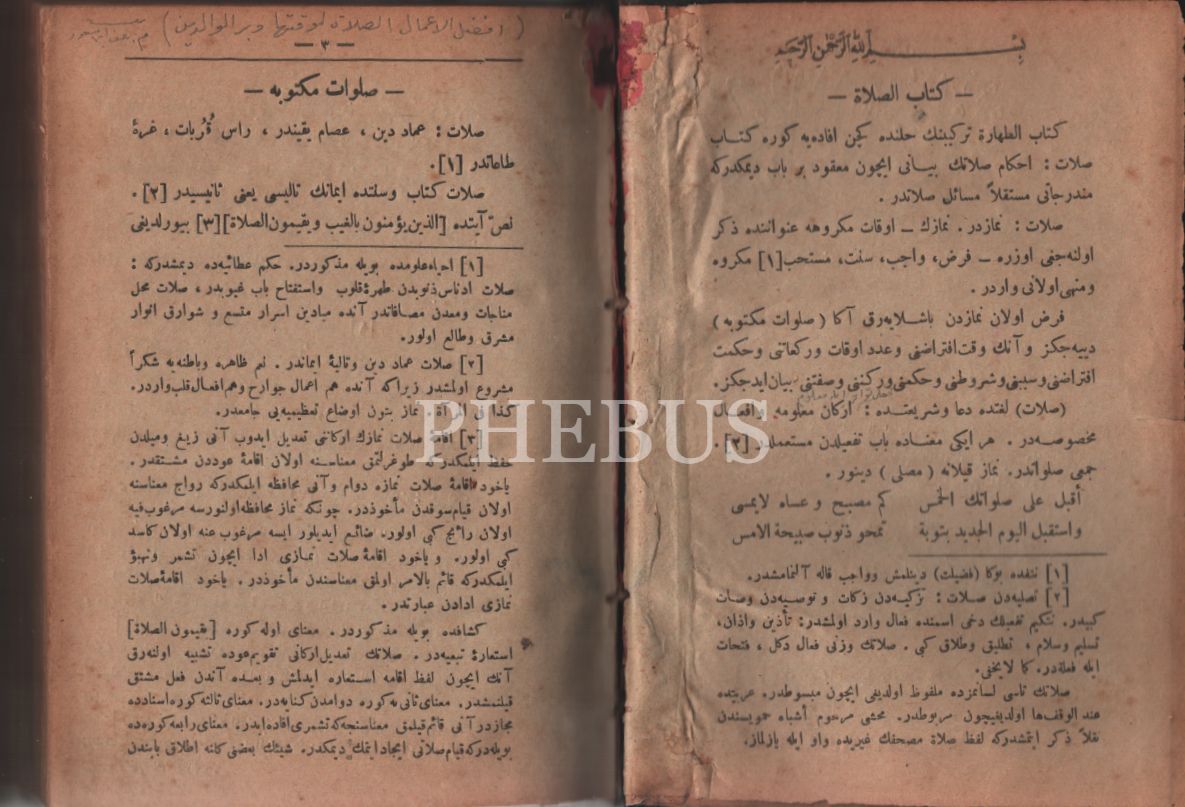 بسم الله الرحمن الرحيم
— كتاب الصلاة —
كتاب الطهارة تركيبنك حلنده كچن افاده‌يه كوره كتاب
صلات : احكام صلاتك بيانى ايچون معقود بر باب ديمكدركه
مندرجاتى مستقلاً مسائل صلاتدر .
صلات : نمازدر . نمازك ــ اوقات مكروهه عنواننده ذكر
اولنه‌جغى اوزره ــ فرض، واجب، سنت، مستحب[١] مكروه
ومنهى اولانى واردر .
فرض اولان نمازدن باشلايه‌رق آكا ( صلوات مكتوبه )
دييه‌جكز و آنك وقت افتراضنى وعدد اوقات وركعاتنى وحكمت
افتراضنى وسببنى وشروطنى وحكمنى وركننى وصفتنى بيان ايده‌جكز.
(صلات) لغتده دعا وشريعتده : اركان معلومه وافعال
مخصوصه‌در . هر ايكى معناده باب تفعيلدن مستعملدر [٢] .
جمعى صلواتدر. نماز قيلانه ( مصلى ) دينور .
أقبل على صلواتك الخمس كم مصبح و عساه لايمسى
واستقبل اليوم الجديد بتوبة تمحو ذنوب صبيحة الامس
[١] نتفده بوكا (فضيلت) دينلمش وواجب قاله آلنمامشدر.
[٢] تصليه‌دن صلات : تزكيه‌دن زكات و توصيه‌دن وصات
كبيدر. نتكيم تفعيلك دخى اسمنده فعال وارد اولمشدر: تأذين واذان،
تسليم وسلام ، تطليق وطلاق كبى . صلاتك وزنى فعال دكل ، فتحات
ايله فعله‌در. كما لايخفى.
صلاتك تاسى لسانمزده ملفوظ اولديغى ايچون مبسوطدر. عربيتده
عند الوقف‌ها اولديغيچون مربوطدر. محشى مرحوم أشباه حمويسندن
نقلاً ذكر ايتمشدركه لفظ صلاة مصحفك غيريده واو ايله يازلماز.
( افضل الاعمال الصلاة لوقتها وبر الوالدين )
— ٣ —
— صلوات مكتوبه —
صلات : عماد دين ، عصام يقيندر ، رأس قُرُبات ، غرهٔ
طاعاتدر [١] .
صلات كتاب وسنتده ايمانك تاليسى يعنى ثانيسيدر [٢] .
نصّ آيتده [الذين يؤمنون بالغيب ويقيمون الصلاة][٣] بيورلديغى
[١] احياء علومده بويله مذكوردر. حكم عطائيه‌ده ديمشدركه :
صلات ادناس ذنوبدن طهرهٔ قلوب واستفتاح باب غيوبدر ، صلات محل
مناجات ومعدن مصافاتدر آنده ميادين اسرار متسع و شوارق انوار
مشرق وطالع اولور.
[٢] صلات عماد دين وتاليهٔ ايماندر . نعم ظاهره وباطنه‌يه شكراً
مشروع اولمشدر زيراكه آنده هم أعمال جوارح وهم افعال قلب واردر.
كذا فى المرآة . نماز بتون اوضاع تعظيميه‌يى جامعدر.
[٣] اقامهٔ صلات نمازك اركاننى تعديل ايدوب آنى زيغ وميلدن
حفظ ايلمكدركه طوغرلتمق معناسنه اولان اقامهٔ عوددن مشتقدر .
ياخود اقامهٔ صلات نمازه دوام وآنى محافظه ايلمكدركه رواج معناسنه
اولان قيام سوقدن مأخوذدر. چونكه نماز محافظه اولنورسه مرغوب فيه
اولان رائج كبى اولور. ضائع ايديلور ايسه مرغوب عنه اولان كاسد
كبى اولور. و ياخود اقامهٔ صلات نمازى ادا ايچون تشمر وتهيؤ
ايلمكدركه قائم بالامر اولمق معناسندن مأخوذدر . ياخود اقامهٔ صلات
نمازى ادادن عبارتدر .
كشافده بويله مذكوردر . معناى اوله كوره [يقيمون الصلاة]
استعارهٔ تبعيه‌در . صلاتك تعديل اركانى تقويم عوده تشبيه اولنه‌رق
آنك ايچون لفظ اقامه استعاره ايدلمش و بعده آندن فعل مشتق
قيلنمشدر. معناى ثانى‌يه كوره دوامدن كنايه‌در. معناى ثالثه كوره اسنادده
مجازدر آنى قائم قيلدى معناسنجه‌كه تشمرى افاده ايدر. معناى رابعه كوره‌ده
بويله‌دركه قيام صلاتى ايجاد ايتمك ديمكدر. شيئك بعضى كلنه اطلاق بابندن
PHEBUS